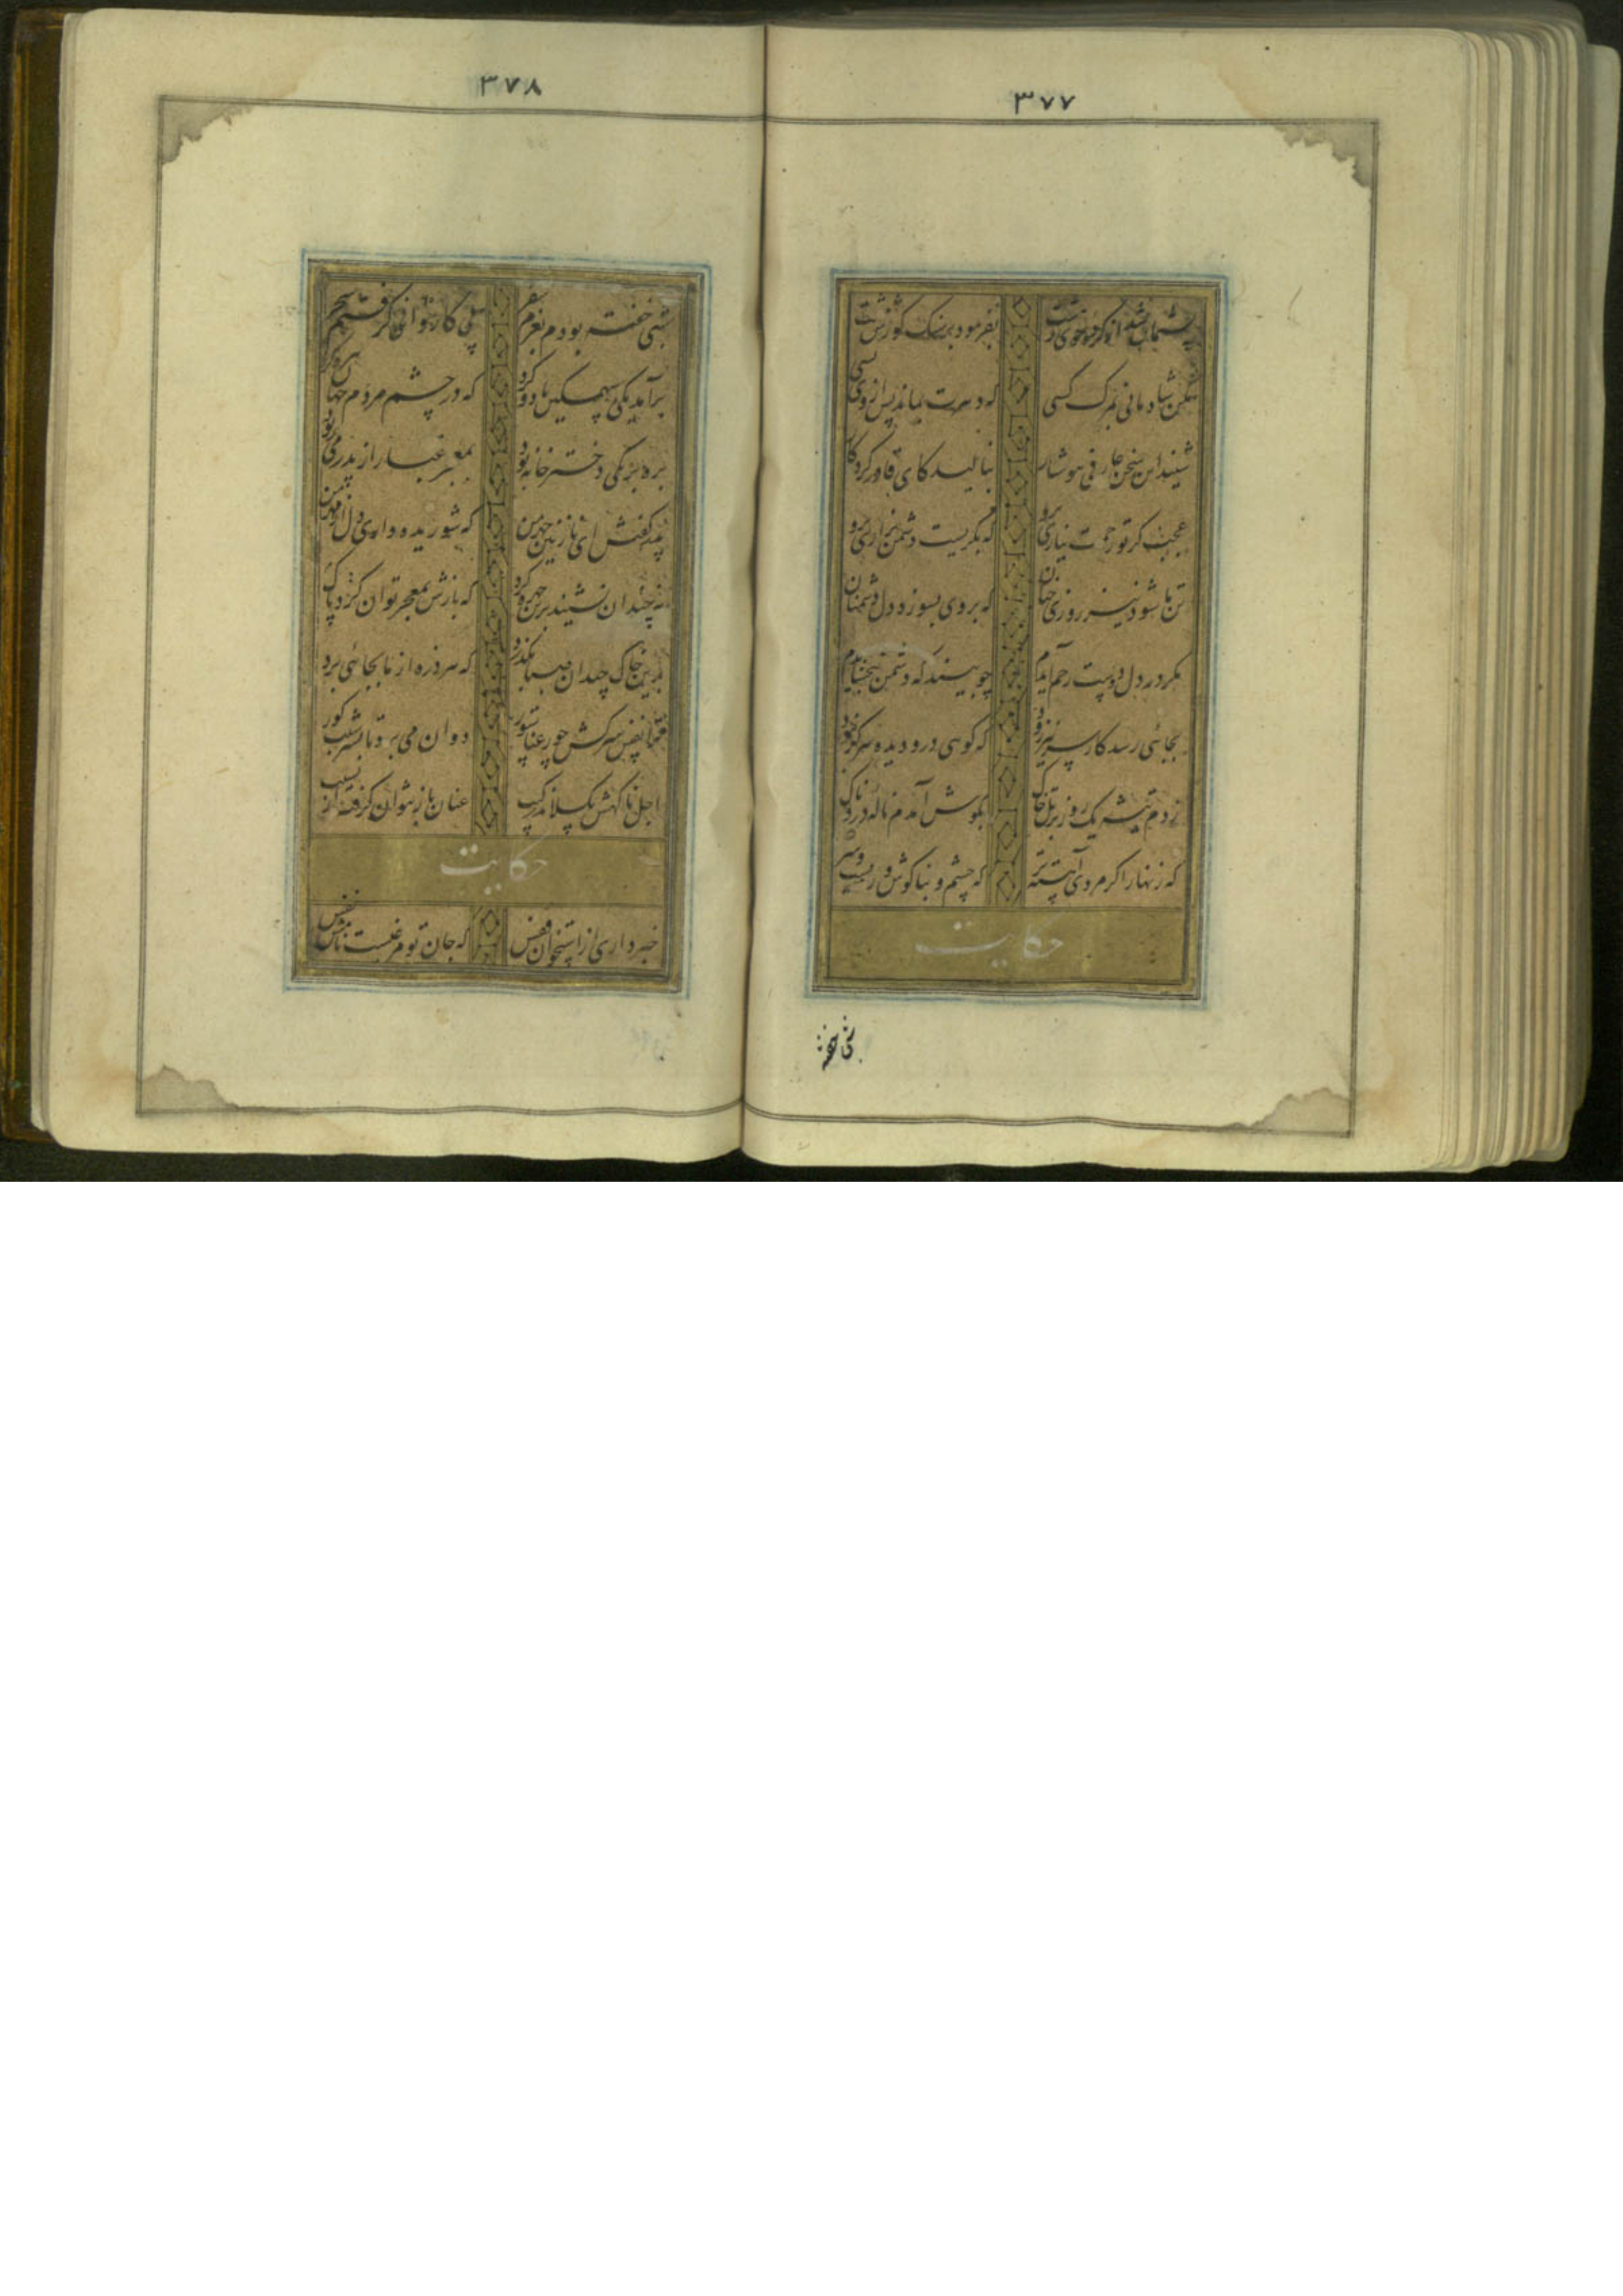 ۳۷۷
پشیمان شد از کرده و خوی زشت بفرمود بر سنگ گورش نبشت
مکن شادمانی بمرک کسی که دهرت نماند پس از وی بسی
شنید این سخن عارفی هوشیار بنالید کای قادر کردکار
عجب کر تو رحمت نیاری برو که بکریست دشمن بزاری برو
تن ما شود نیز روزی چنان که بر وی بسوزد دل دشمنان
مکر در دل دوست رحم آیدم چو بیند که دشمن ببخشایدم
بجائی رسد کار سر دیر و زود که کوئی درو دیده هرکز نبود
زدم تیشه یک روز بر تل خاک بکوش آمدم ناله دردناک
که زنهار اکر مردی آهسته تر که چشم و بناکوش و رویست و سر
حکایت
شبی خفته
۳۷۸
شبی خفته بودم بعزم سفر پی کاروانی کرفتم سحر
برآمد یکی سهمکین باد و کرد که در چشم مردم جهان تیره کرد
بره بر یکی دختر خانه بود بمعجر غبار از پدر می زدود
پدر کفتش ای نازنین چهر من که شوریده داری دل از مهر من
نه چندان نشیند برین چهره کرد که بازش بمعجر توان کرد پاک
برین خاک چندان صبا بکذرد که هر ذره از ما بجائی برد
ترا نفس سرکش چو رعنا ستور دوان می برد تا بسر شیب کور
اجل ناکهت بکسلاند رکیب عنان باز نتوان کرفت از نشیب
حکایت
خبر داری از استخوان قفس که جان تو مرغیست نامش نفس